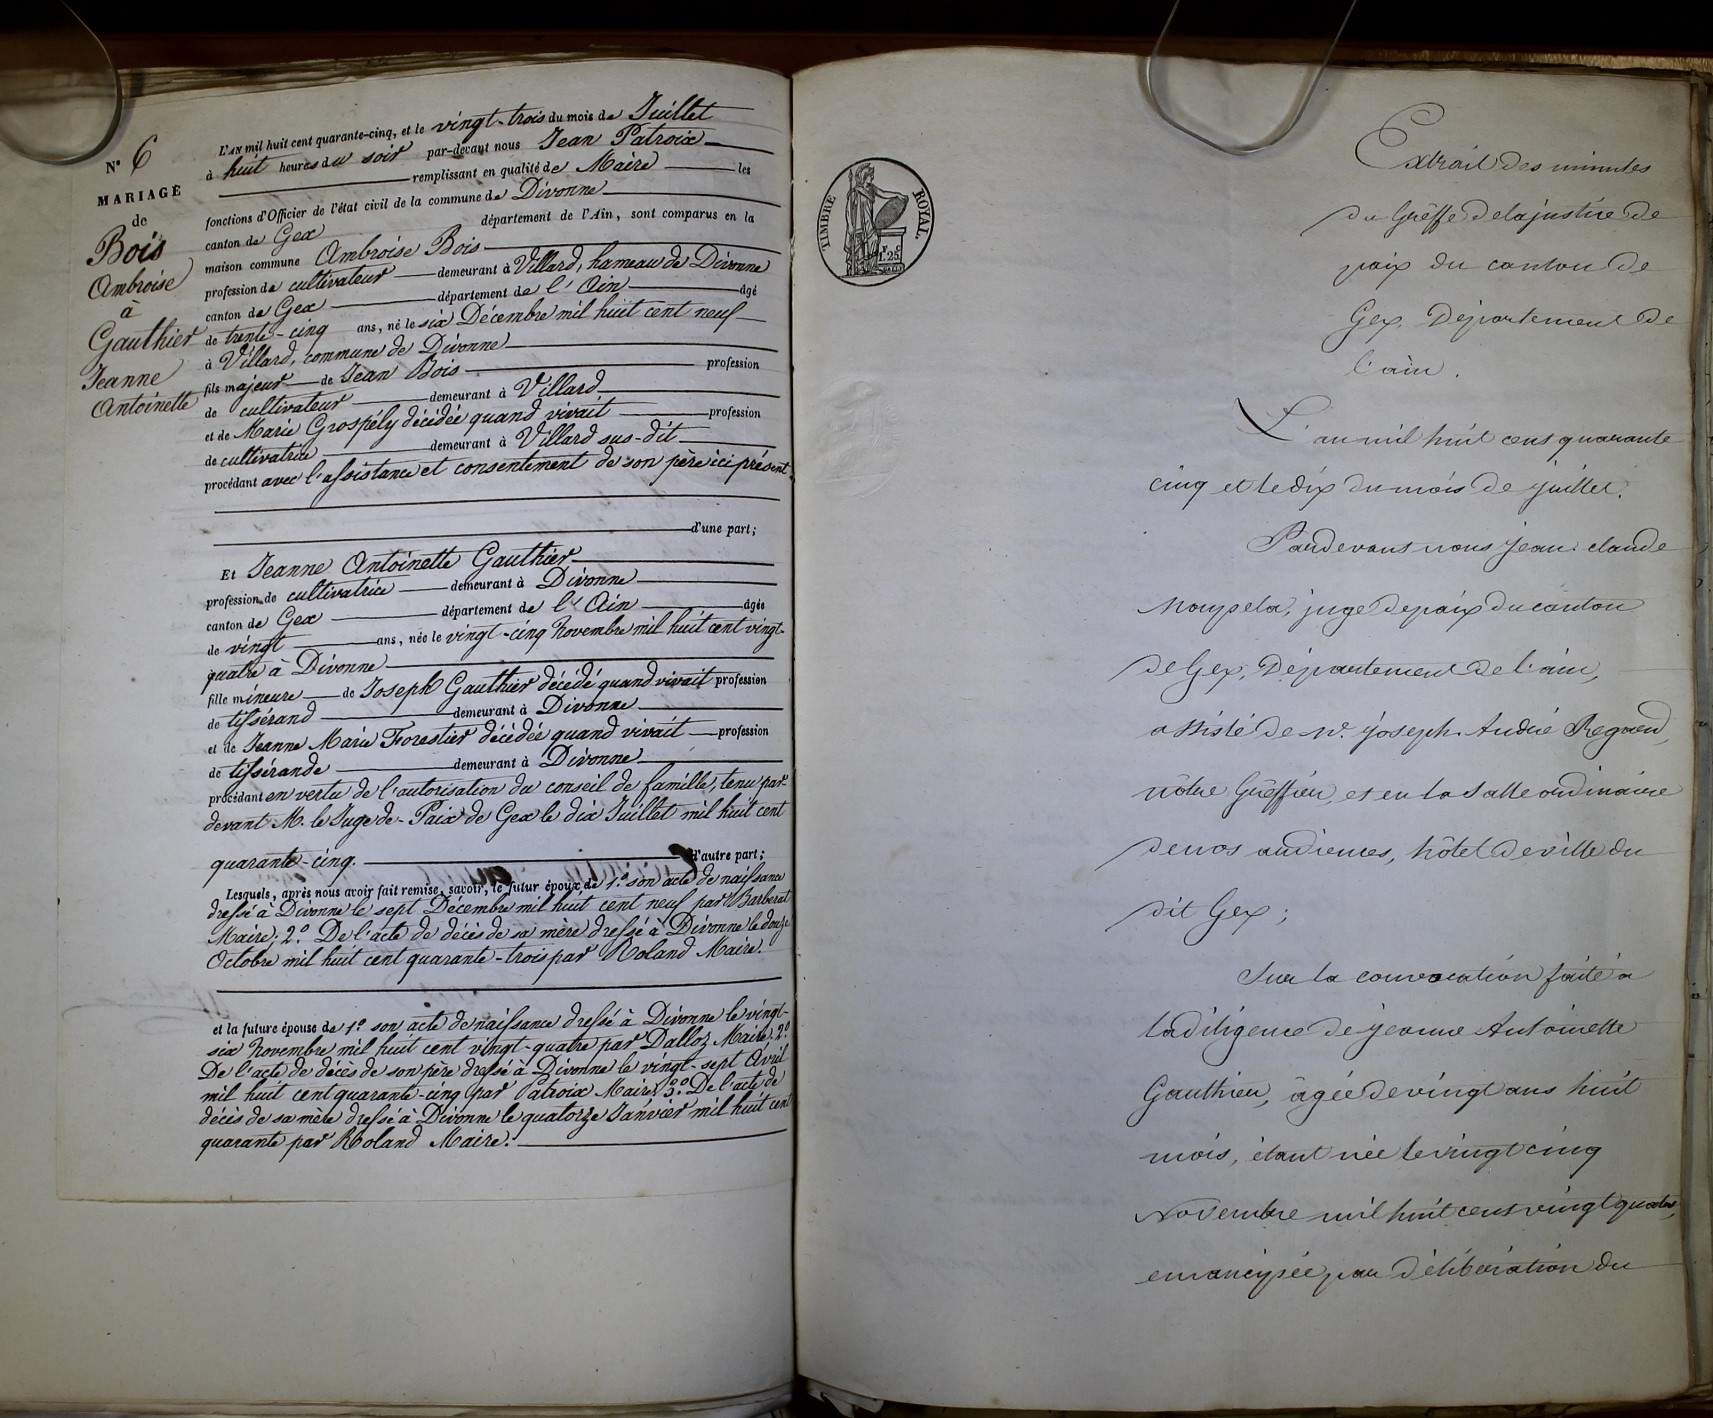 N° 6
MARIAGE
de
Bois
Ambroise
à
Gauthier
Jeanne
Antoinette
L'AN mil huit cent quarante-cinq, et le vingt-trois du mois de Juillet
à huit heures du soir par-devant nous Jean Patroix
remplissant en qualité de Maire les
fonctions d'Officier de l'état civil de la commune de Divonne
canton de Gex département de l'Ain, sont comparus en la
maison commune Ambroise Bois
profession de cultivateur demeurant à Villard, hameau de Divonne
canton de Gex département de l'Ain âgé
de trente-cinq ans, né le six Décembre mil huit cent neuf
à Villard, commune de Divonne
fils majeur de Jean Bois profession
de cultivateur demeurant à Villard
et de Marie Grospély décédée quand vivait profession
de cultivatrice demeurant à Villard sus-dit
procédant avec l'assistance et consentement de son père ici présent
d'une part;
Et Jeanne Antoinette Gauthier
profession de cultivatrice demeurant à Divonne
canton de Gex département de l'Ain âgée
de vingt ans, née le vingt-cinq Novembre mil huit cent vingt-
quatre à Divonne
fille mineure de Joseph Gauthier décédé quand vivait profession
de tissérand demeurant à Divonne
et de Jeanne Marie Forestier décédée quand vivait profession
de tissérande demeurant à Divonne
procédant en vertu de l'autorisation du conseil de famille, tenu par-
devant M. le Juge de-Paix de Gex le dix Juillet mil huit cent
quarante-cinq. d'autre part;
Lesquels, après nous avoir fait remise, savoir, le futur époux de 1.° son acte de naissance
dressé à Divonne le sept Décembre mil huit cent neuf par Barberat
Maire; 2.° De l'acte de décès de sa mère dressé à Divonne le douze
Octobre mil huit cent quarante-trois par Roland Maire.
et la future épouse de 1.° son acte de naissance dressé à Divonne le vingt-
six Novembre mil huit cent vingt-quatre par Dalloz Maire; 2.°
De l'acte de décès de son père dressé à Divonne le vingt-sept Avril
mil huit cent quarante-cinq par Patroix Maire; 3.° De l'acte de
décès de sa mère dressé à Divonne le quatorze Janvier mil huit cent
quarante par Roland Maire.
TIMBRE ROYAL
F C
1.25
Extrait des minutes
du Greffe de la justice de
paix du canton de
Gex, Département de
l'ain.
L'an mil huit cent quarante
cinq et le dix du mois de juillet.
Pardevant nous jean claude
juge de paix du canton
de Gex, Département de l'ain,
assisté de M.e joseph André Regard,
nôtre Greffier, et en la salle ordinaire
de nos audiences, hôtel de ville du
dit Gex;
Sur la convocation faite à
la diligence de jeanne Antoinette
Gauthier, âgée de vingt ans huit
mois, étant née le vingt cinq
Novembre mil huit cent vingt quatre,
emancipée par délibération du